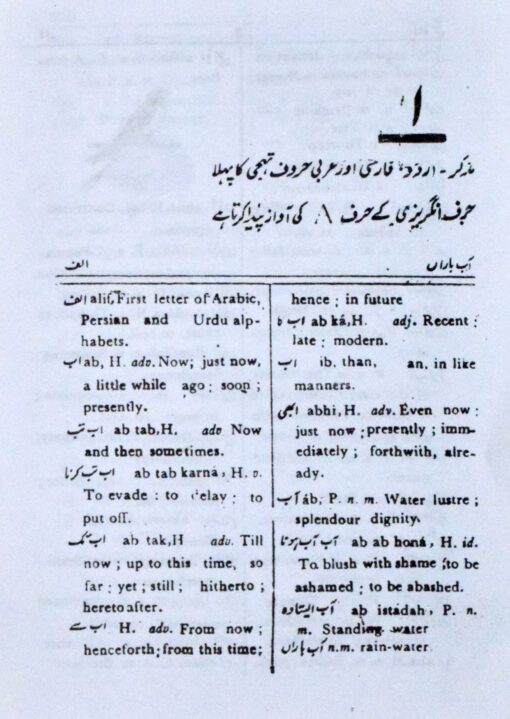 ا
مذکر - اردو، فارسی اور عربی حروف تہجی کا پہلا
حرف انگریزی کے حرف A کی آواز پیدا کرتا ہے
الف
آب باراں
الف alif, First letter of Arabic,
Persian and Urdu alp-
habets.
اب ab, H. adv. Now; just now,
a little while ago; soon;
presently.
اب تب ab tab, H. adv Now
and then sometimes.
اب تب کرنا ab tab karná, H. v.
To evade: to delay; to
put off.
اب تک ab tak, H adv. Till
now; up to this time, so
far; yet; still; hitherto;
heretoafter.
اب سے H. adv. From now;
henceforth; from this time;
hence; in future
اب کا ab ká, H. adj. Recent;
late; modern.
اب ib, than, an, in like
manners.
ابھی abhi, H. adv. Even now;
just now; presently; imm-
ediately; forthwith, alre-
ady.
آب áb, P. n. m. Water lustre;
splendour dignity.
آب آب ہونا ab ab honá, H. id.
To blush with shame; to be
ashamed; to be abashed.
آب ایستادہ ab istádah, P. n.
m. Standing water
آب باراں n.m. rain-water.